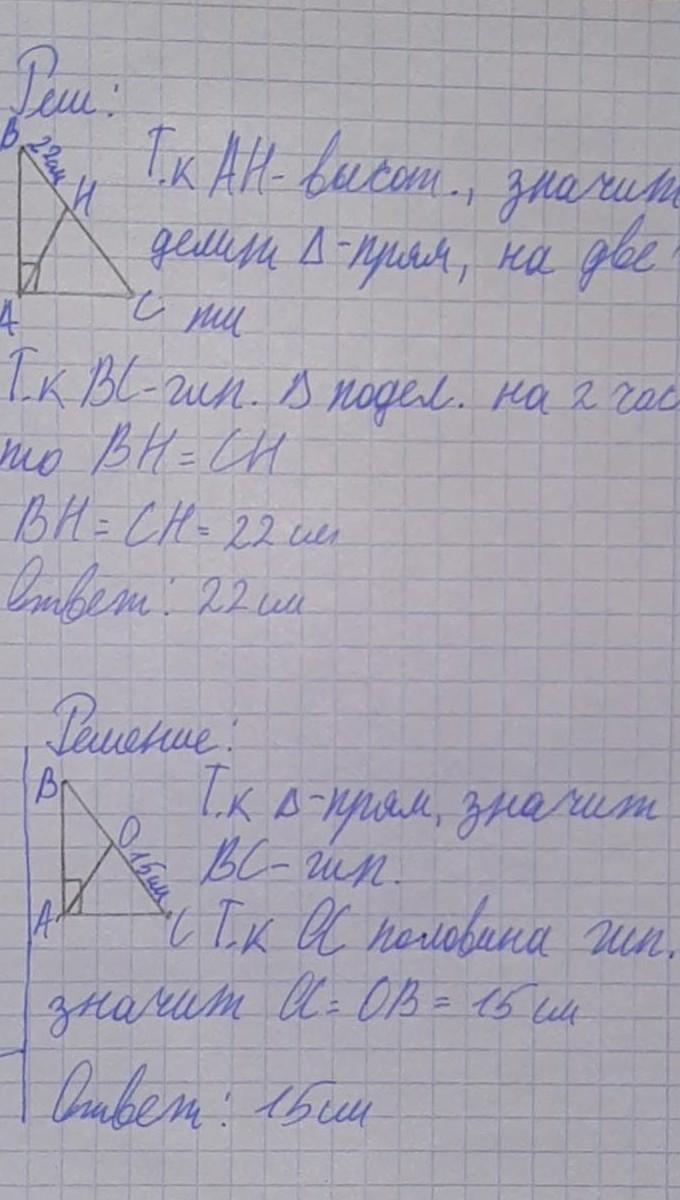 Реш:
B 22см H
A C
Т.к AH - высот., значит
делит Δ-прям, на две
ти
Т.к BC-гип. Δ подел. на 2 час
то BH = CH
BH = CH = 22 см
Ответ: 22 см
Решение:
B O 15см
A C
Т.к Δ-прям, значит
BC - гип.
Т.к OC половина гип.
значит OC = OB = 15 см
Ответ: 15 см